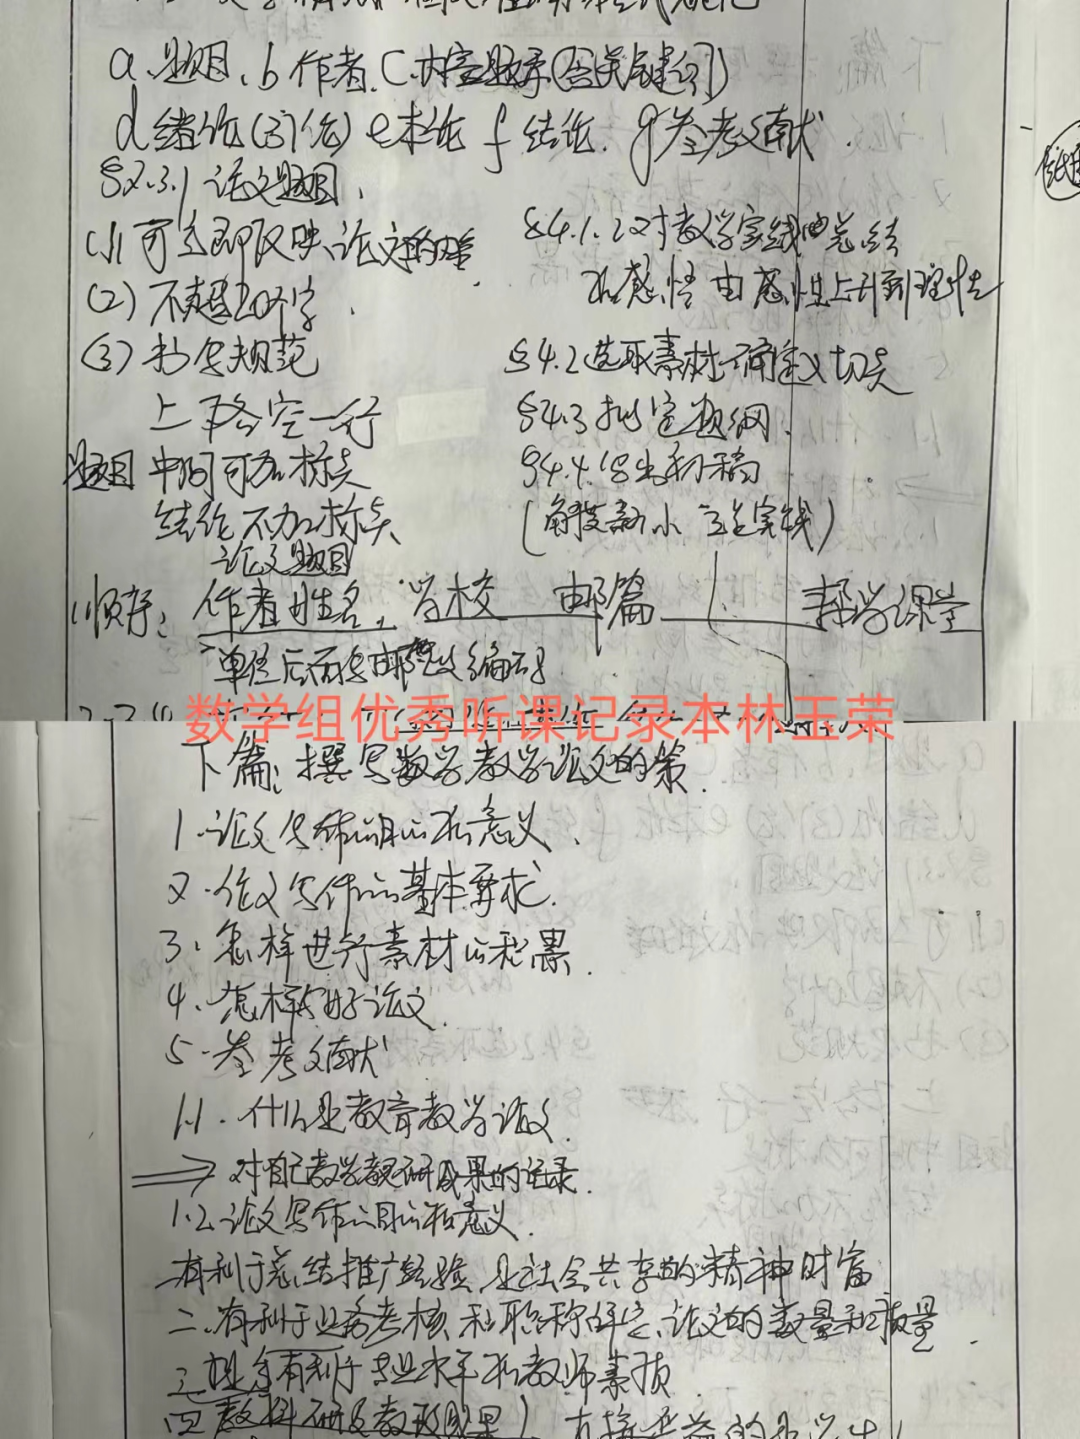 a.题目、b作者、C.内容题录(含关键词)
d绪论(引论) e本论 f结论. g参考文献.
§2.3.1 论文题目.
(1)可立即反映论文的内容
(2)不超20个字.
(3)书写规范
上下各空一行
题目 中间可加标点
结论不加标点
论文题目
顺序: 作者姓名, 学校 邮篇
单位后面写邮政编码
§4.1.2对教学实践的总结
和感悟 由感性上升到理性
§4.2选取素材 确定义切点
§4.3拟定题纲.
§4.4.写出初稿
(角度新小 立足实践)
帮学课堂
数学组优秀听课记录本林玉荣
下篇: 撰写数学教学论文的策.
1.论文写作的目的和意义、
2.论文写作的基本要求.
3、怎样进行素材的积累.
4.怎样写好论文.
5.参考文献
1.1.什么是教育教学论文.
⇒对自己教学教研成果的记录.
1.2论文写作的目的和意义.
一有利于总结推广经验,是社会共享的精神财富
二、有利于业务考核和职称评定、论文的数量和质量.
三.提高有利于专业水平和教师素质
四教科研及教改成果